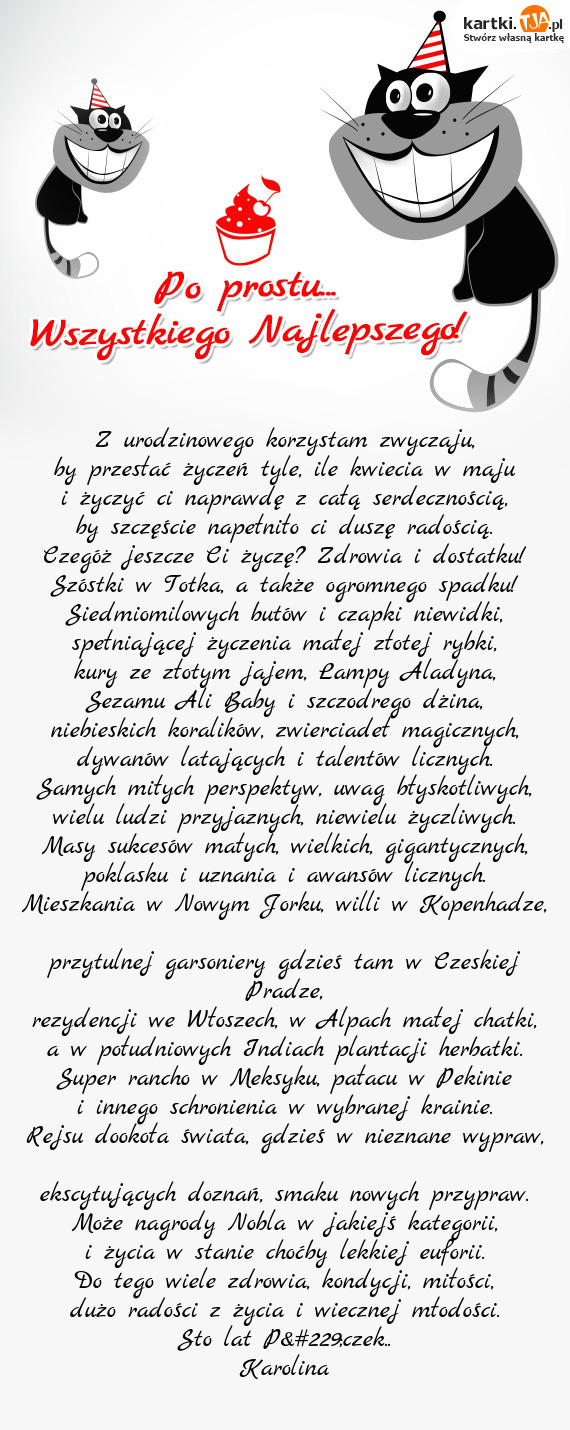 kartki.TJA.pl
Stwórz własną kartkę
Po prostu...
Wszystkiego Najlepszego!
Z urodzinowego korzystam zwyczaju,
by przesłać życzeń tyle, ile kwiecia w maju
i życzyć ci naprawdę z całą serdecznością,
by szczęście napełniło ci duszę radością.
Czegóż jeszcze Ci życzę? Zdrowia i dostatku!
Szóstki w Totka, a także ogromnego spadku!
Siedmiomilowych butów i czapki niewidki,
spełniającej życzenia małej złotej rybki,
kury ze złotym jajem, Lampy Aladyna,
Sezamu Ali Baby i szczodrego dżina,
niebieskich koralików, zwierciadeł magicznych,
dywanów latających i talentów licznych.
Samych miłych perspektyw, uwag błyskotliwych,
wielu ludzi przyjaznych, niewielu życzliwych.
Masy sukcesów małych, wielkich, gigantycznych,
poklasku i uznania i awansów licznych.
Mieszkania w Nowym Jorku, willi w Kopenhadze,
przytulnej garsoniery gdzieś tam w Czeskiej
Pradze,
rezydencji we Włoszech, w Alpach małej chatki,
a w południowych Indiach plantacji herbatki.
Super rancho w Meksyku, pałacu w Pekinie
i innego schronienia w wybranej krainie.
Rejsu dookoła świata, gdzieś w nieznane wypraw,
ekscytujących doznań, smaku nowych przypraw.
Może nagrody Nobla w jakiejś kategorii,
i życia w stanie choćby lekkiej euforii.
Do tego wiele zdrowia, kondycji, miłości,
dużo radości z życia i wiecznej młodości.
Sto lat P&#229;czek..
Karolina